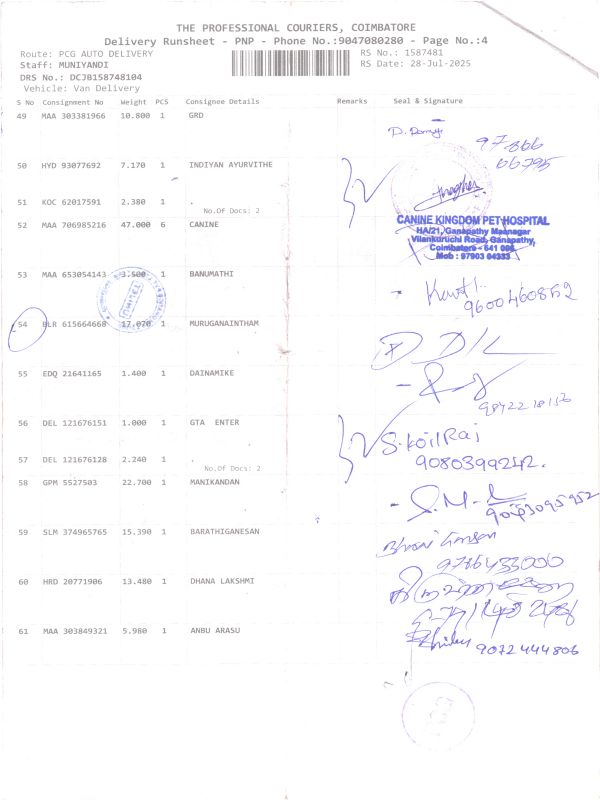 THE PROFESSIONAL COURIERS, COIMBATORE
Delivery Runsheet - PNP - Phone No.:9047080280 - Page No.:4
Route: PCG AUTO DELIVERY
RS No.: 1587481
Staff: MUNIYANDI
RS Date: 28-Jul-2025
DRS No.: DCJB158748104
Vehicle: Van Delivery
S No Consignment No Weight PCS Consignee Details Remarks Seal & Signature
49 MAA 303381966 10.800 1 GRD
97866
66795
50 HYD 93077692 7.170 1 INDIYAN AYURVITHE
51 KOC 62017591 2.380 1
No.Of Docs: 2
52 MAA 706985216 47.000 6 CANINE
CANINE KINGDOM PET HOSPITAL
HA/21, Ganapathy Maanagar
Vilankurichi Road, Ganapathy,
Coimbatore - 641 006.
Mob : 97903 04333
53 MAA 653054143 3.500 1 BANUMATHI
9600460862
54 BLR 615664668 17.070 1 MURUGANAINTHAM
D/L
55 EDQ 21641165 1.400 1 DAINAMIKE
56 DEL 121676151 1.000 1 GTA ENTER
S.KoilRaj
9080399242.
57 DEL 121676128 2.240 1
No.Of Docs: 2
58 GPM 5527503 22.700 1 MANIKANDAN
59 SLM 374965765 15.390 1 BARATHIGANESAN
9716433000
60 HRD 20771906 13.480 1 DHANA LAKSHMI
61 MAA 303849321 5.980 1 ANBU ARASU
9072444806